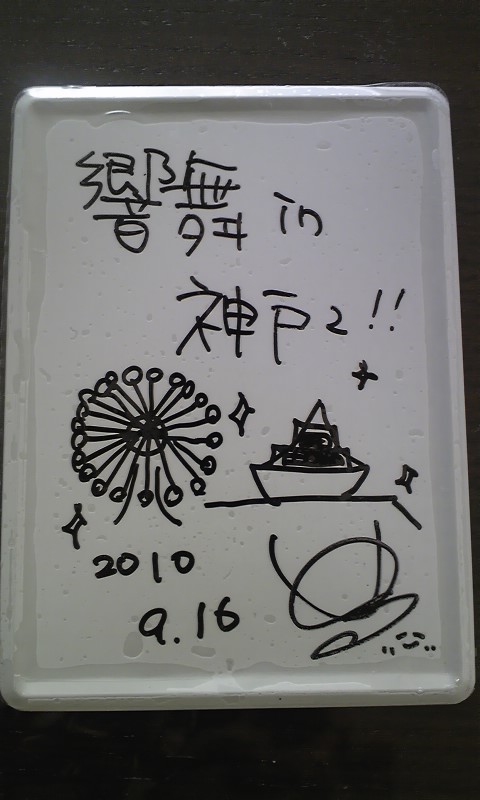 響舞 in
神戸2!!
2010
9.16